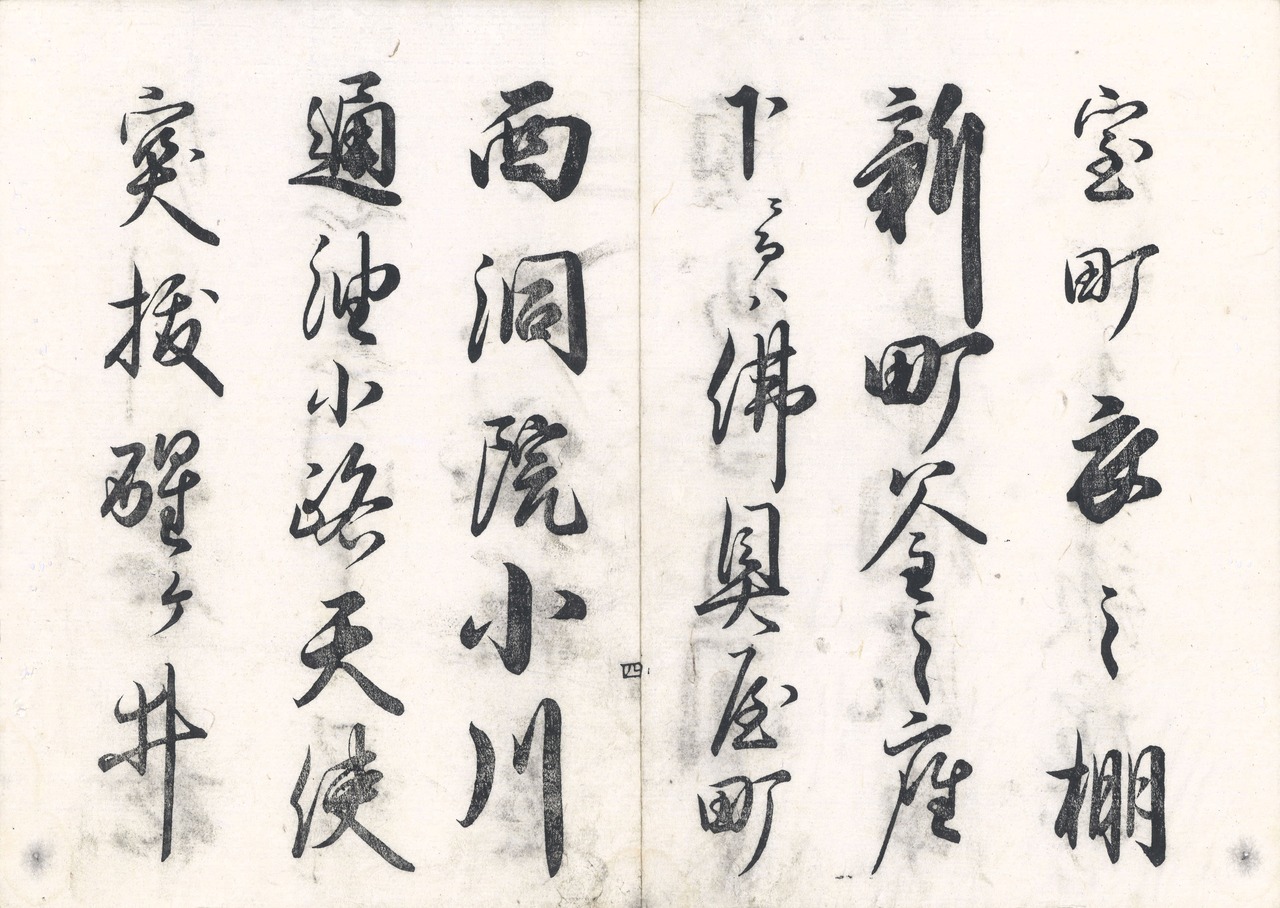 室町衣之棚
新町釜之座
下ニ而ハ佛具屋町
四
西洞院小川
通油小路天使
突抜醒ヶ井